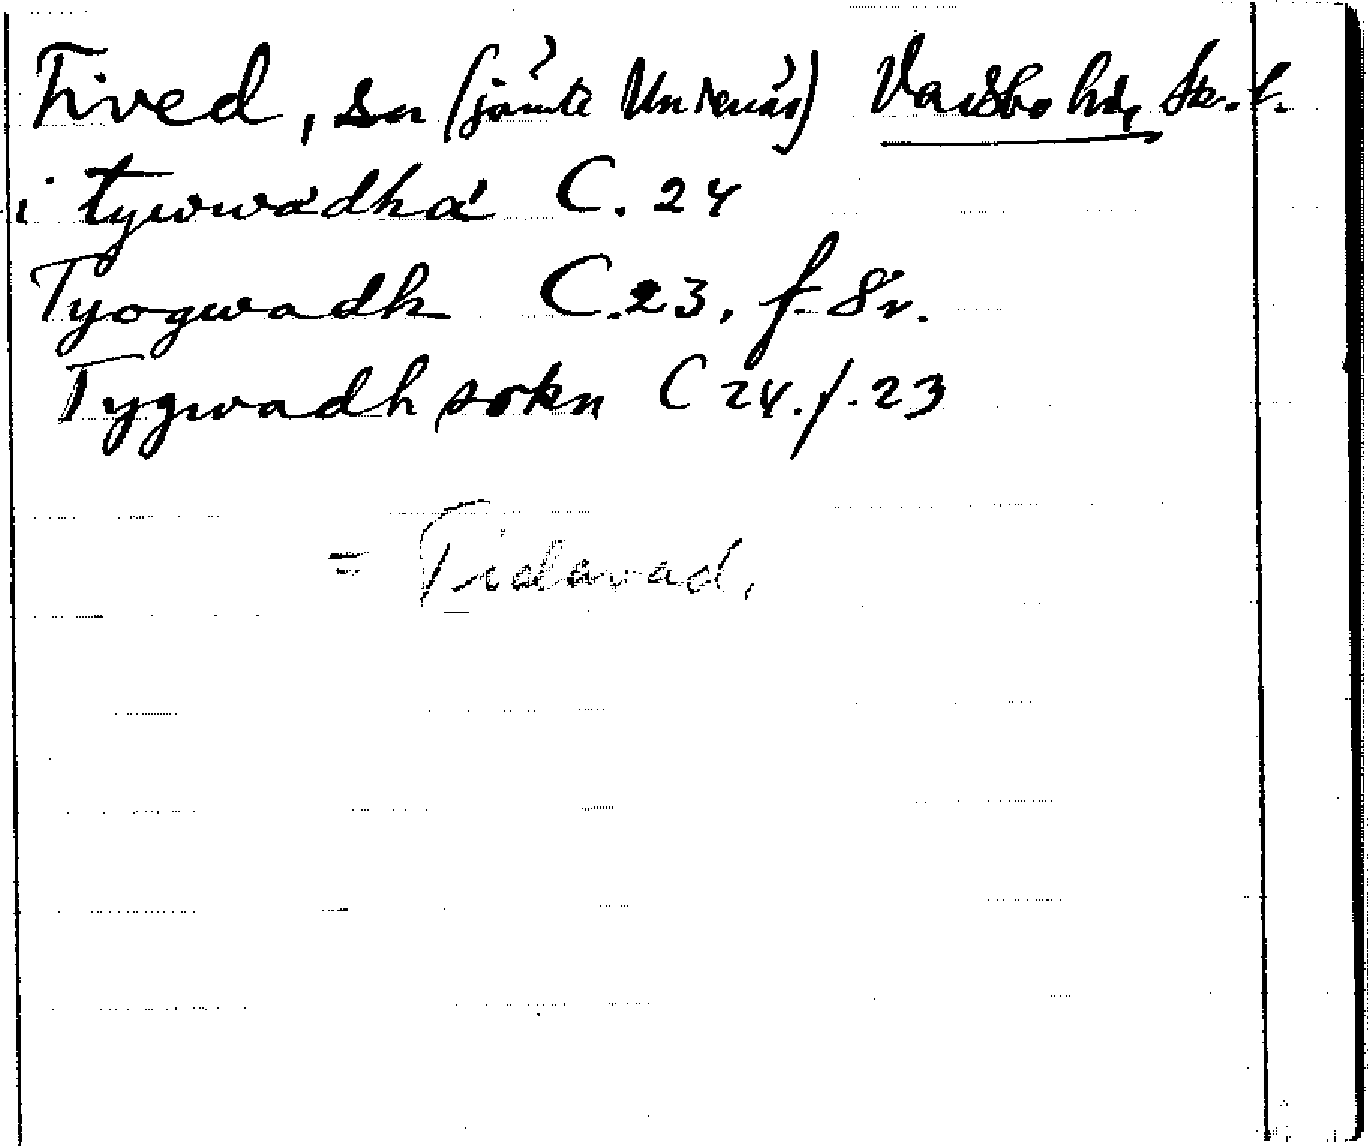 Tived, sn (jämte Undenäs) Vadsbo hd, Sk. l.
i tywwædhæ C. 24
Tyogwadh C. 23, f. 8v.
Tygwadh sokn C 24. f. 23
= Tidavad,